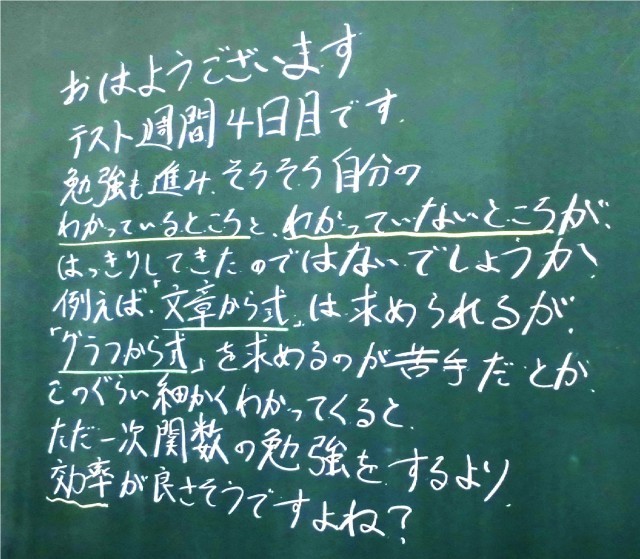 おはようございます
テスト週間4日目です.
勉強も進み、そろそろ自分の
わかっているところと、わかっていないところが、
はっきりしてきたのではないでしょうか、
例えば、「文章から式」は求められるが、
「グラフから式」を求めるのが苦手だとか、
このぐらい細かくわかってくると、
ただ一次関数の勉強をするより、
効率が良さそうですよね?